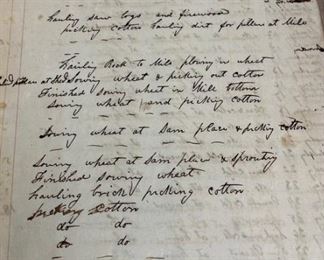 hauling saw logs and firewood
picking cotton hauling dirt for pillers at Mile
Hailing Rock to Mile plowing in wheat
pillers at Shed Sowing wheat & picking out cotton
Finished sowing wheat in Mile bottom
Sowing wheat and picking cotton
Sowing wheat at Sam place & picking cotton
Sowing wheat at Sam place & sprouting
Finished sowing wheat
hauling brick picking cotton
picking cotton
do do
do do